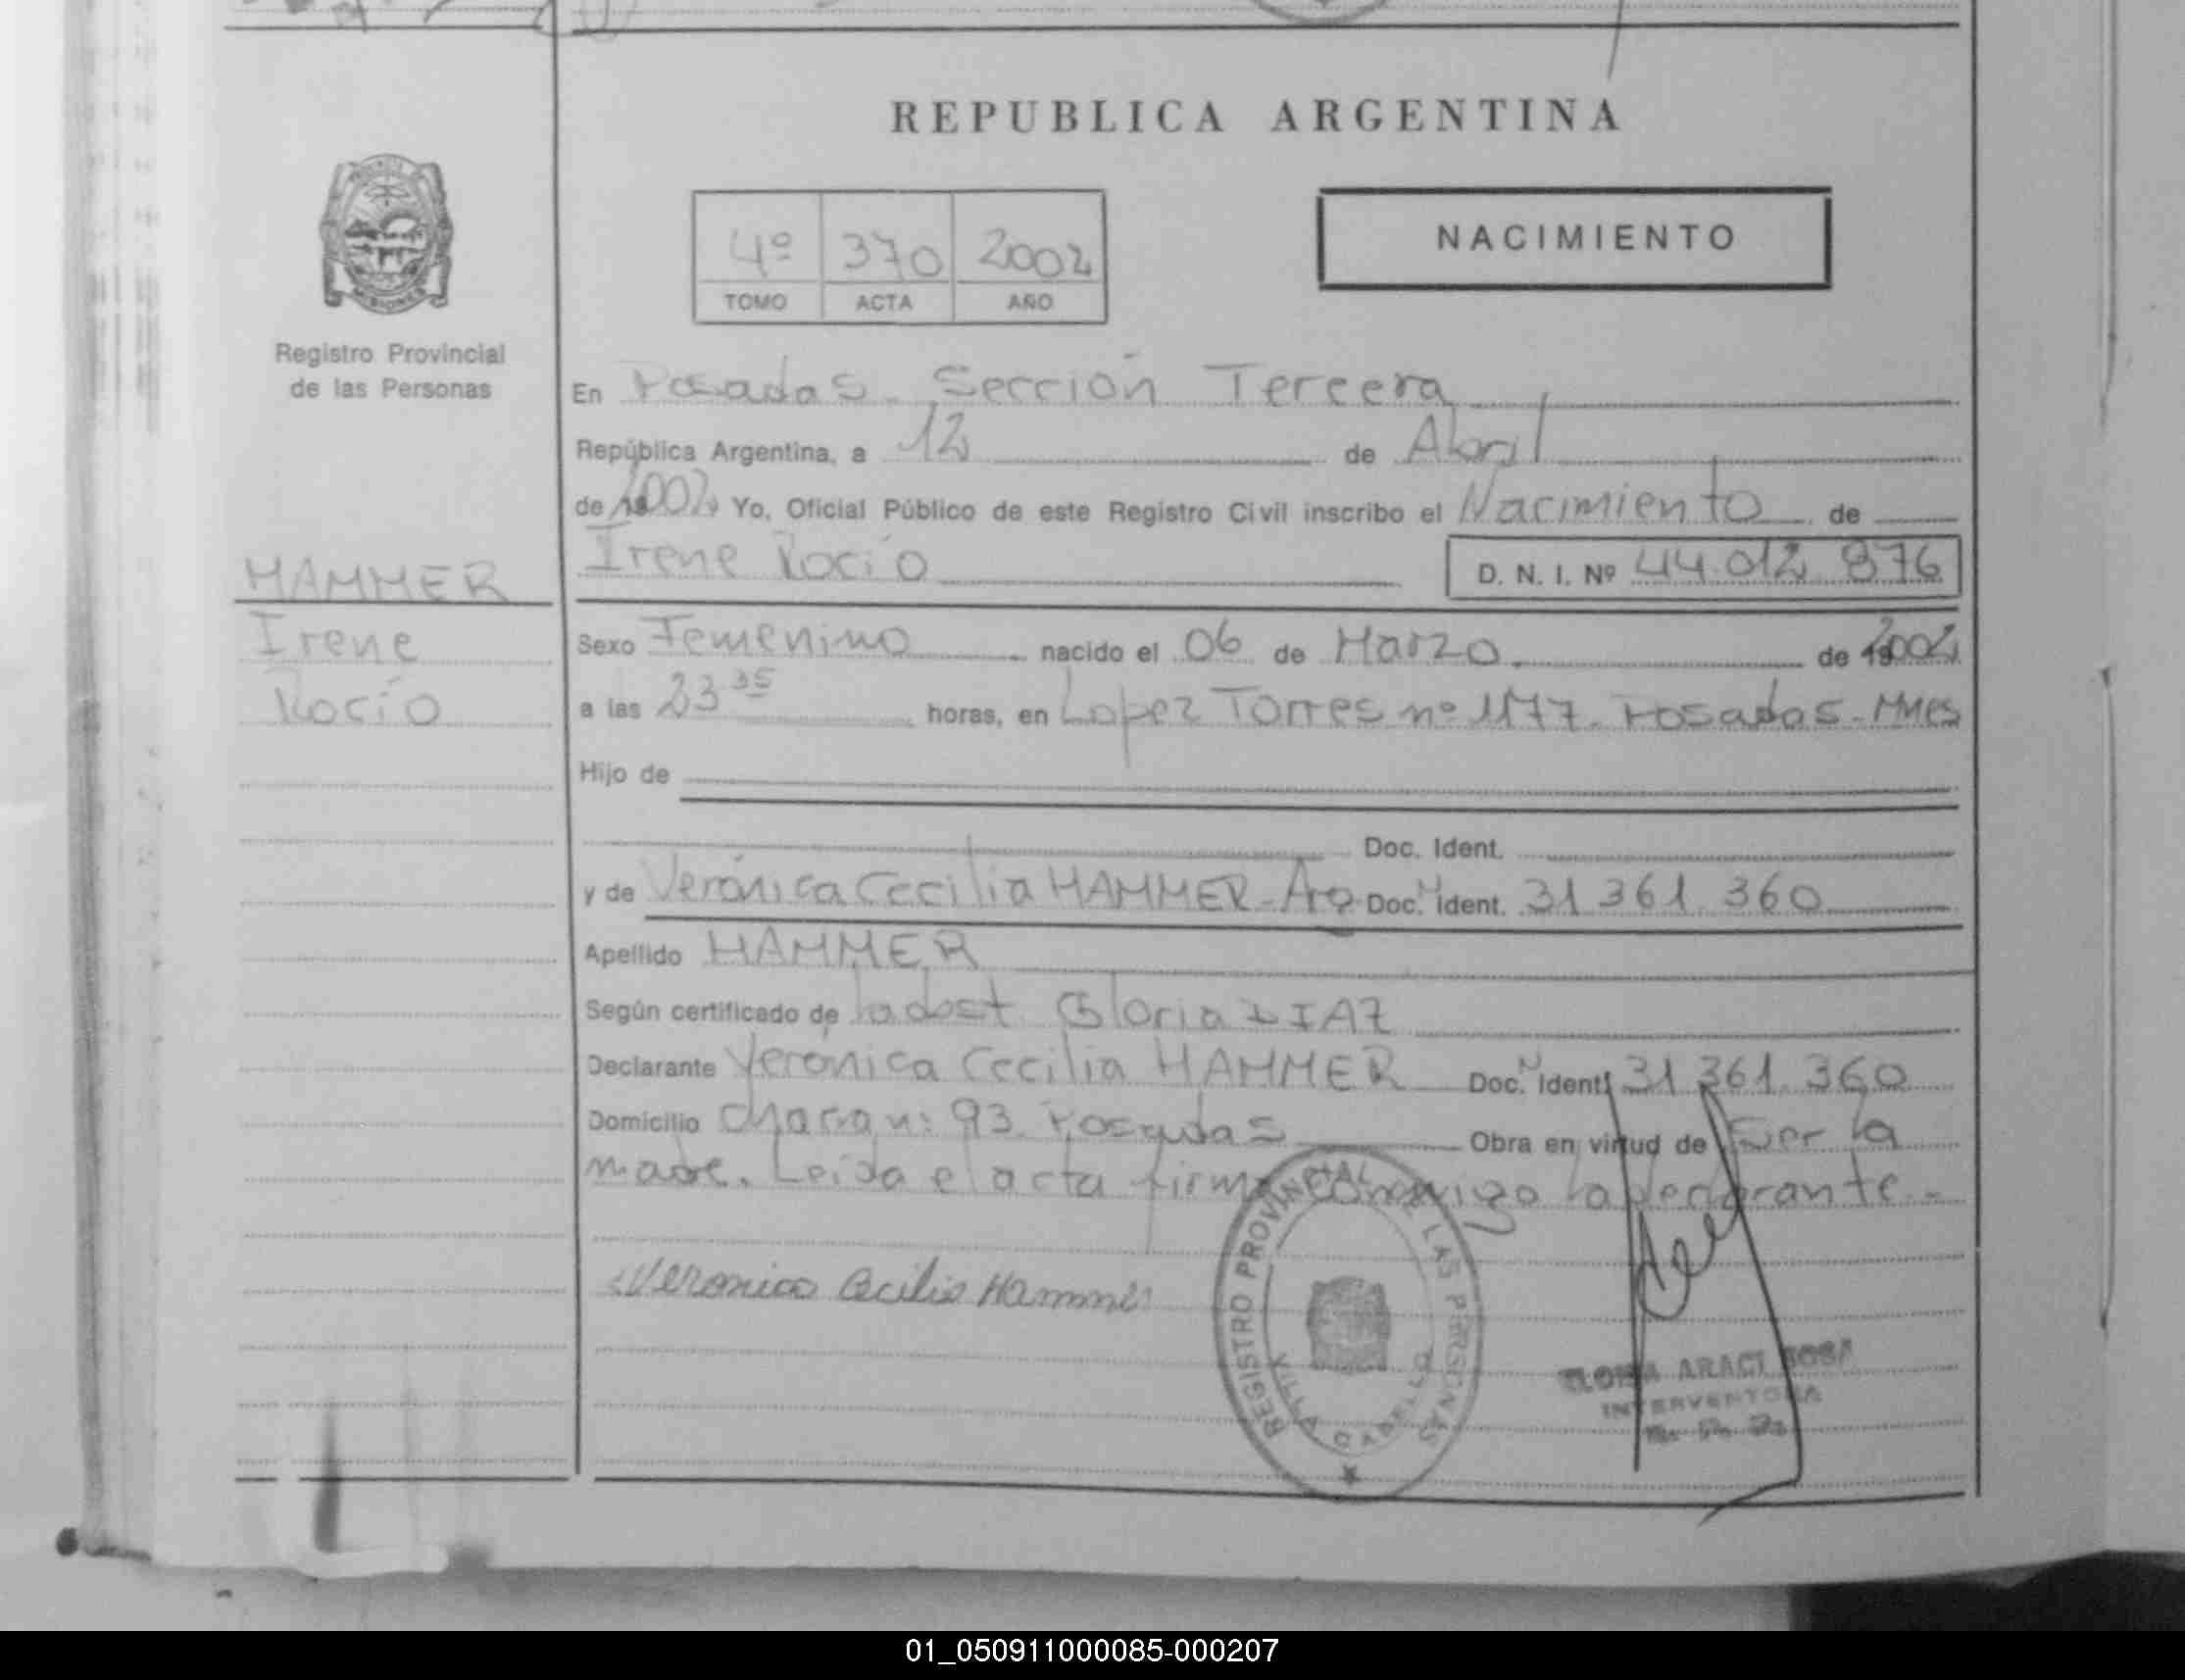 REPUBLICA ARGENTINA
NACIMIENTO
4º 370 2002
TOMO ACTA AÑO
MISIONES
Registro Provincial
de las Personas
En Posadas - Sección Tercera
República Argentina, a 12 de Abril
de 2002 Yo, Oficial Público de este Registro Civil inscribo el Nacimiento de
HAMMER
Irene Rocío
D. N. I. Nº 44.012.876
Irene
Rocío
Sexo Femenino nacido el 06 de Marzo de 2002
a las 23 35 horas, en Lopez Torres nº 1177 - Posadas - Mnes
Hijo de
Doc. Ident.
y de Verónica Cecilia HAMMER - Arg Doc. N Ident. 31 361 360
Apellido HAMMER
Según certificado de la obst. Gloria DIAZ
Declarante Verónica Cecilia HAMMER Doc. N Ident. 31 361 360
Domicilio nº 93 Posadas Obra en virtud de Ser la
madre. Leída el acta firma conmigo la declarante -
Veronica Cecilia Hammer
REGISTRO PROVINCIAL DE LAS PERSONAS
VILLA CABELLO
ARACI SOSA
INTERVENTORA
01_050911000085-000207